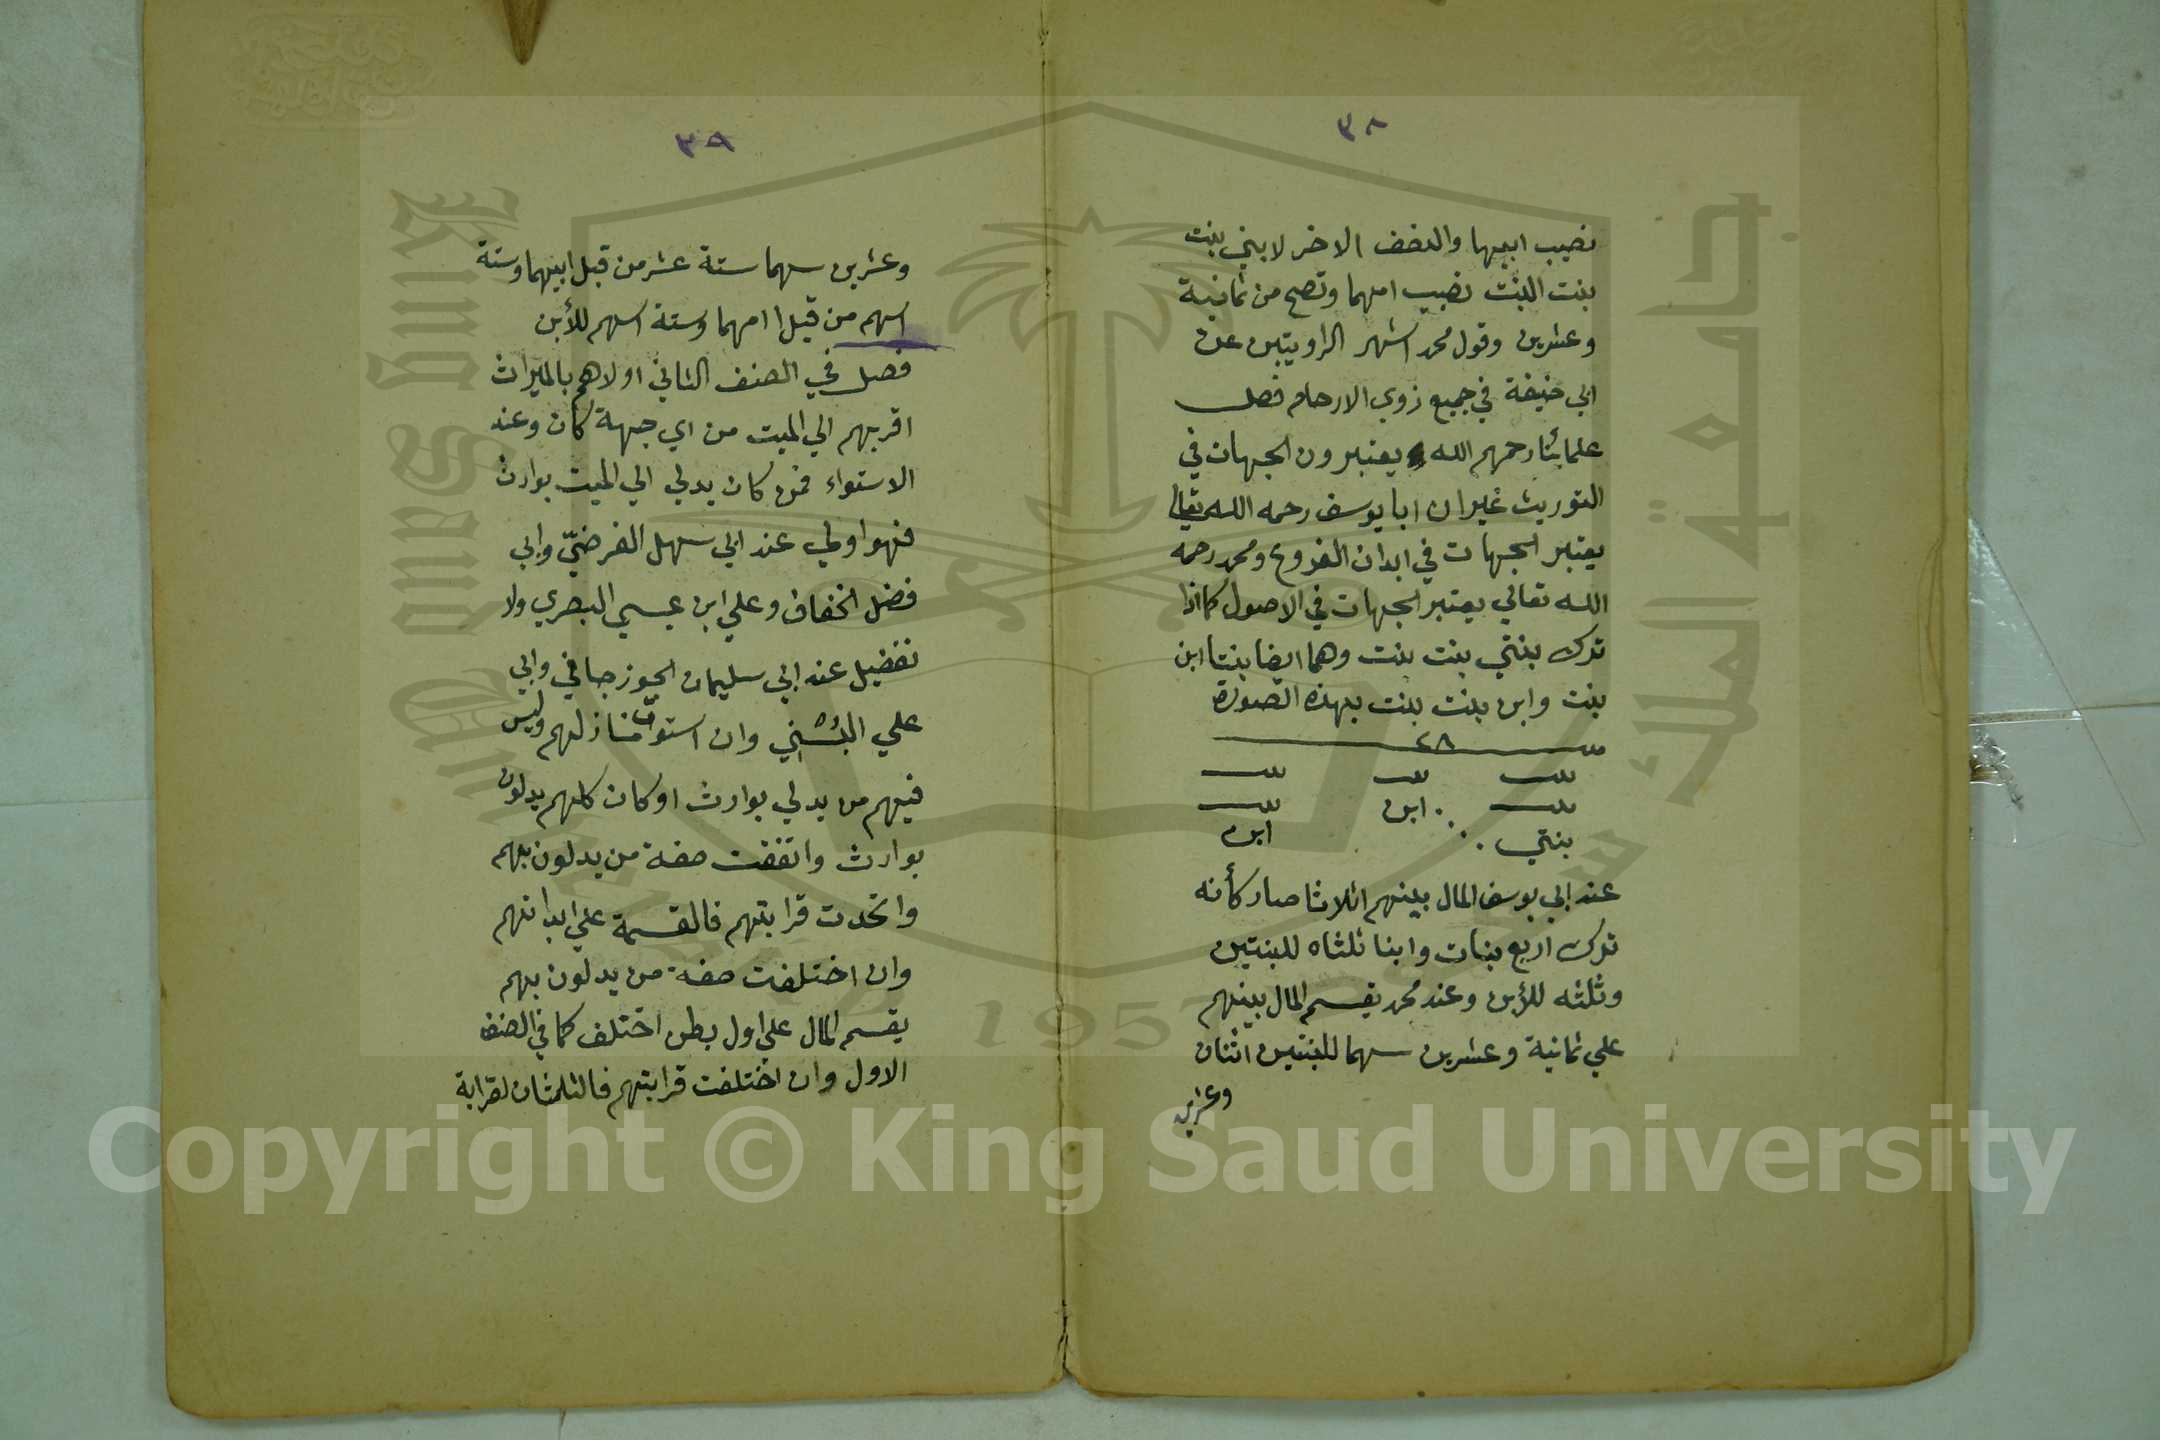 ٣٨
نصيب ابيها والنصف الاخر لابني بنت
بنت البنت نصيب امهما وتصح من ثمانية
وعشرين وقول محمد اشهر الراويتين عن
ابي حنيفة في جميع زوي الارحام فصل
علمائنا رحمهم الله يعتبرون الجهات في
التوريث غير ان ابا يوسف رحمه الله تعالى
يعتبر الجهات في ابدان الفروع ومحمد رحمه
الله تعالي يعتبر الجهات في الاصول كما اذا
ترك بنتي بنت بنت وهما ايضا بنتا ابن
بنت وابن بنت بنت بهذه الصورة
٢٨
بنت بنت بنت
بنت ابن بنت
بنتي ابن
عند ابي يوسف المال بينهم اثلاثا صار كأنه
ترك اربع بنات وابنا ثلثاه للبنتين
وثلثه للأبن وعند محمد يقسم المال بينهم
علي ثمانية وعشرين سهما للبنتين اثنان
وعشرين
٣٩
وعشرين سهما ستة عشر من قبل ابيهما وستة
اسهم من قبل امهما وستة اسهم للأبن
فصل في الصنف الثاني اولاهم بالميراث
اقربهم الي الميت من اي جهة كان وعند
الاستواء فمن كان يدلي الي الميت بوارث
فهو اولي عند ابي سهل الفرضيّ وابي
فضل الخفاف وعلي ابن عيسي البصري ولا
تفضيل عند ابي سليمان الجوزجاني وابي
علي البُسْتِي وان استوت منازلهم وليس
فيهم من يدلي بوارث او كان كلهم يدلون
بوارث واتفقت صفة من يدلون بهم
واتحدت قرابتهم فالقسمة علي ابدانهم
وان اختلفت صفة من يدلون بهم
يقسم المال علي اول بطن اختلف كما في الصنف
الاول وان اختلفت قرابتهم فالثلثان لقرابة
جامعة الملك سعود
King Saud University
1957
Copyright © King Saud University